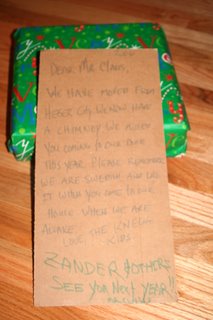 Dear Mr Claus,
We have moved from
Heber City. We now have
a chimney. We missed
you coming in our door
this year. Please remember
we are Swedish and like
it when you come to our
house when we are
awake. The Knell
Love, Kids
Zander & others
See you next year!!